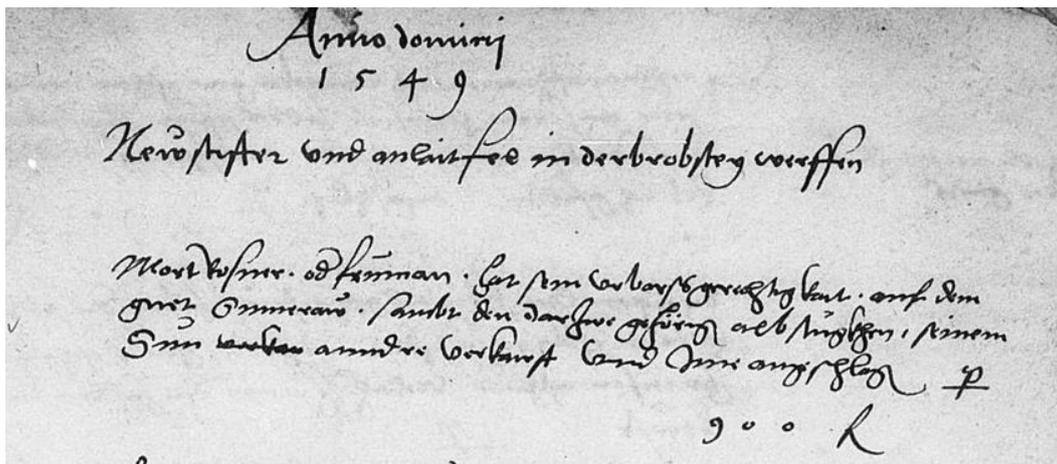 Anno dominij
1549
Newstifter vnd anlaitfeδ in der brobstey werffen
Mort Kosner. od früman. hat sein vrbarsgerechtigkait. auf dem
guet Sumeraw. sambt den darzue gehörig albstugkhen, seinem
Sun anndre verkaufft vnnd Ime angeschlagn p
900 R